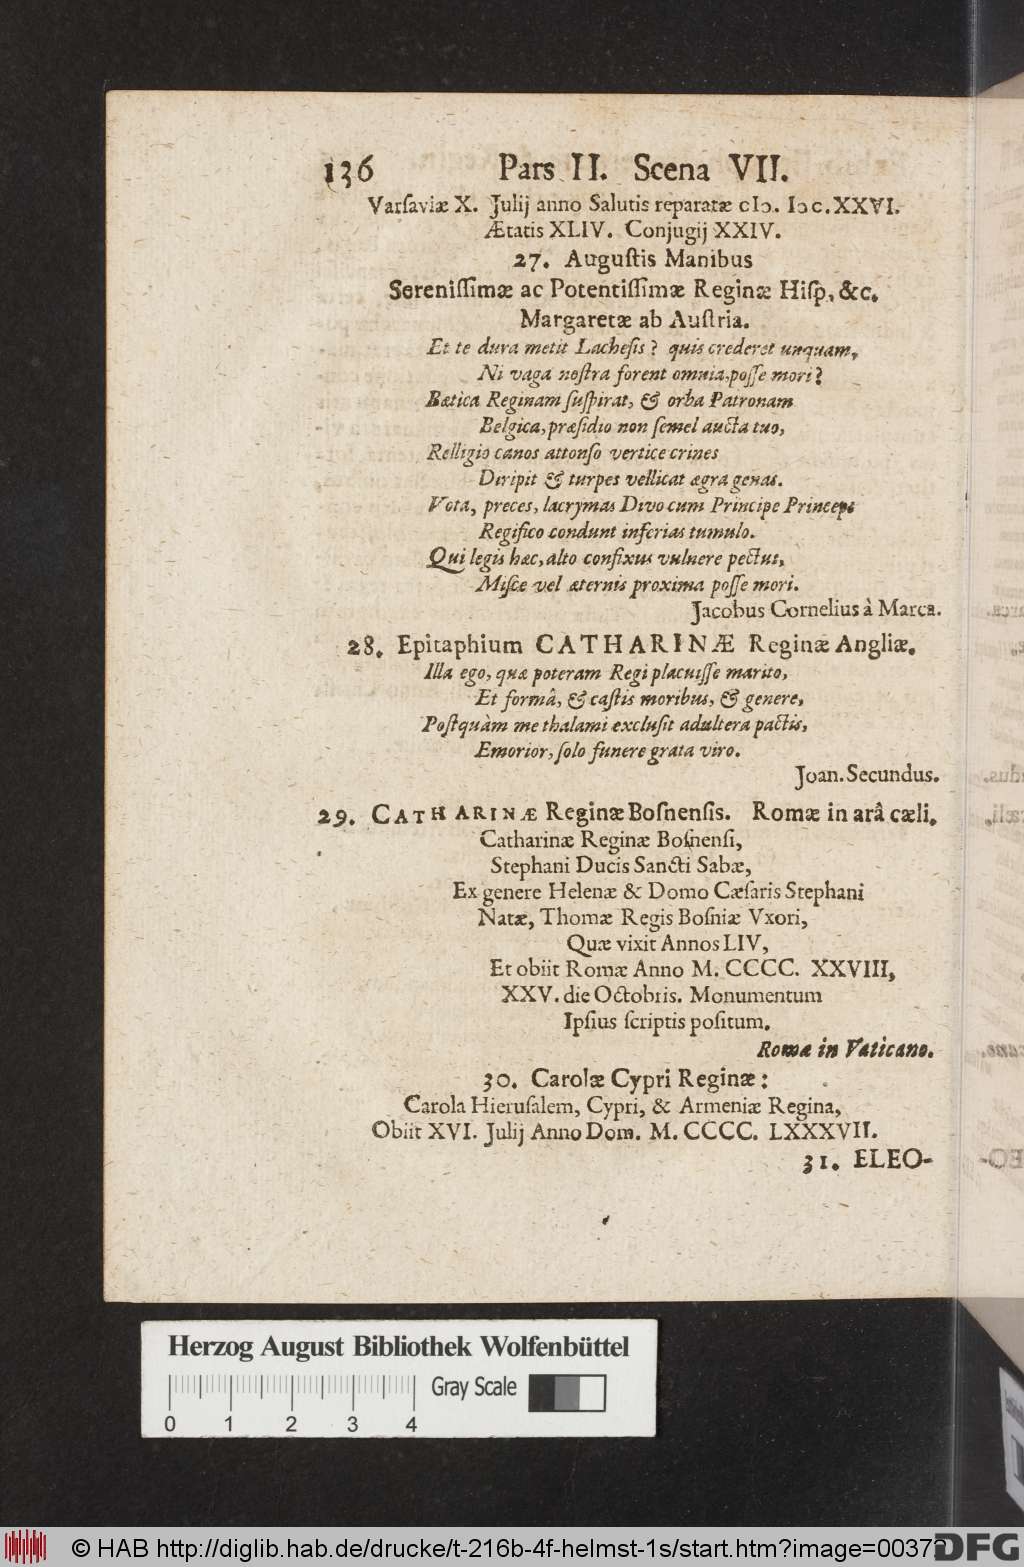 136 Pars II. Scena VII.
Varſaviæ X. Julij anno Salutis reparatæ cIɔ. Iɔc. XXVI.
Ætatis XLIV. Conjugij XXIV.
27. Auguſtis Manibus
Sereniſſimæ ac Potentiſſimæ Reginæ Hiſp, &c.
Margaretæ ab Auſtria.
Et te dura metit Lacheſis? quis crederet unquam,
Ni vaga noſtra forent omnia, poſſe mori?
Bætica Reginam ſuſpirat, & orba Patronam
Belgica, præſidio non ſemel aucta tuo,
Relligio canos attonſo vertice crines
Diripit & turpes vellicat ægra genas.
Vota, preces, lacrymas Divo cum Principe Princeps
Regifico condunt inferias tumulo.
Qui legis hæc, alto confixus vulnere pectus,
Miſce vel æternis proxima poſſe mori.
Jacobus Cornelius à Marca.
28. Epitaphium CATHARINÆ Reginæ Angliæ.
Illa ego, quæ poteram Regi placuiſſe marito,
Et formâ, & caſtis moribus, & genere,
Poſtquàm me thalami excluſit adultera pactis,
Emorior, ſolo funere grata viro.
Joan. Secundus.
29. CATHARINÆ Reginæ Boſnenſis. Romæ in arâ cæli.
Catharinæ Reginæ Boſnenſi,
Stephani Ducis Sancti Sabæ,
Ex genere Helenæ & Domo Cæſaris Stephani
Natæ, Thomæ Regis Boſniæ Vxori,
Quæ vixit Annos LIV,
Et obiit Romæ Anno M. CCCC. XXVIII,
XXV. die Octobris. Monumentum
Ipſius ſcriptis poſitum.
Romæ in Vaticano.
30. Carolæ Cypri Reginæ:
Carola Hieruſalem, Cypri, & Armeniæ Regina,
Obiit XVI. Julij Anno Dom. M. CCCC. LXXXVII.
31. ELEO-
Herzog August Bibliothek Wolfenbüttel
Gray Scale
0 1 2 3 4
© HAB http://diglib.hab.de/drucke/t-216b-4f-helmst-1s/start.htm?image=00372
DFG